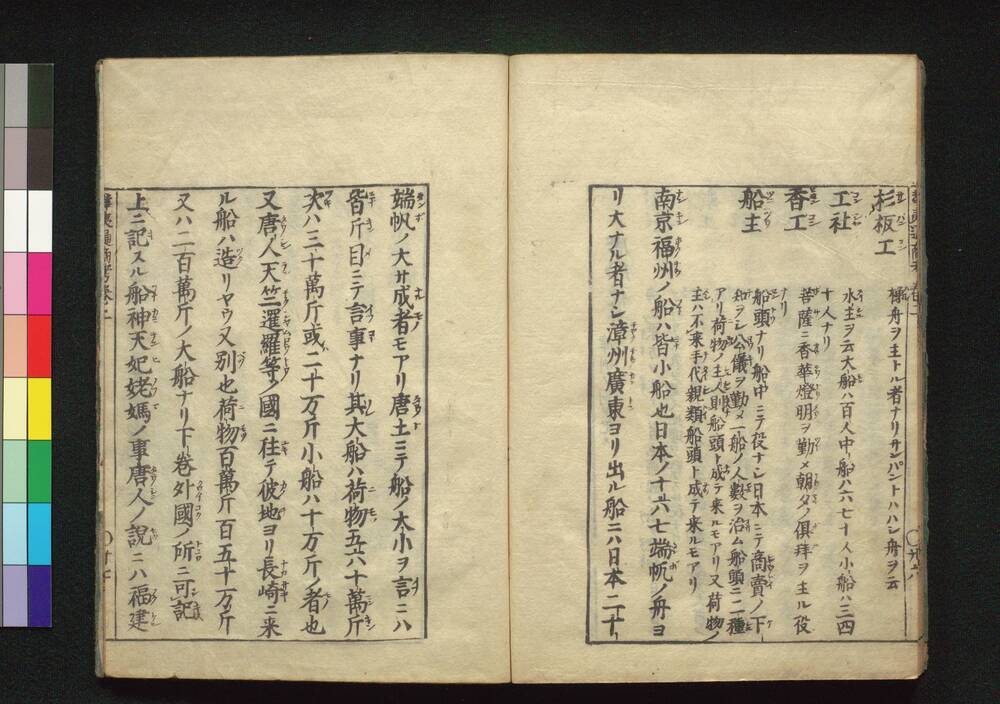 杉板工
橋舟ヲ主トル者ナリサンパントハハシ舟ヲ云
工社
水主ヲ云大船ハ百人中ノ船ハ六七十人小船ハ三四
十人ナリ
香工
菩薩ニ香華燈明ヲ勤メ朝夕ノ俱拜ヲ主ル役
ナリ
船主
船頭ナリ船中ニテ役ナシ日本ニテ商賣ノ下
知ヲシ公儀ヲ勤メ一船ノ人数ヲ治ム船頭ニ二種
アリ荷物ノ主人則船頭ト成テ来ルモアリ又荷物ノ
主ハ不来手代親類船頭ト成テ来ルモアリ
南京福州ノ船ハ皆小船也日本ノ十六七端帆ノ舟ヨ
リ大ナル者ナシ漳州廣東ヨリ出ル船ニハ日本二十
端帆ノ大サ成者モアリ唐土ニテ船ノ大小ヲ言ニハ
皆斤目ニテ言事ナリ其大船ハ荷物五六十萬斤
次ハ三十萬斤或二十万斤小船ハ十万斤ノ者也
又唐人天竺暹羅等ノ國ニ往テ彼地ヨリ長崎ニ来
ル船ハ造リヤウ又別也荷物百萬斤百五十万斤
又ハ二百萬斤ノ大船ナリ下巻外國ノ所ニ可記
上ニ記スル船神天妃姥媽ノ事唐人ノ説ニハ福建